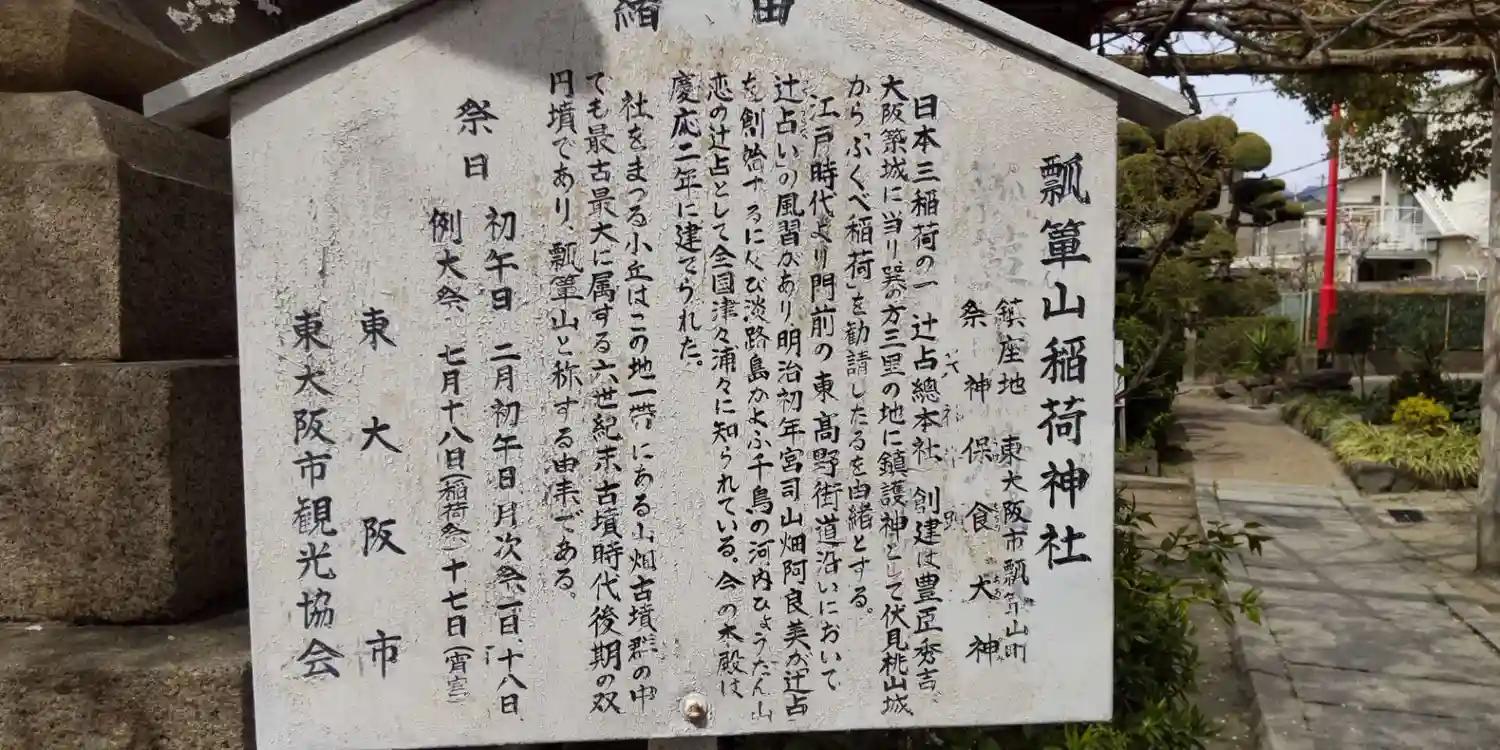 由緒
瓢簞山稲荷神社
鎮座地 東大阪市瓢簞山町
祭神 保食大神
日本三稲荷の一 辻占總本社 創建は豊臣秀吉、
大阪築城に当り巽の方三里の地に鎮護神として伏見桃山城
から「ふくべ稲荷」を勧請したるを由緒とする。
江戸時代より門前の東高野街道沿いにおいて
辻占い」の風習があり明治初年宮司山畑阿良美が辻占
を創始するに及び淡路島かよふ千鳥の河内ひょうたん山
恋の辻占として全国津々浦々に知られている。今の本殿は
慶応二年に建てられた。
社をまつる小丘はこの地一帯にある山畑古墳群の中
でも最古最大に属する六世紀末古墳時代後期の双
円墳であり、瓢簞山と称する由来である。
祭日 初午日 二月初午日、月次祭一日、十八日
例大祭 七月十八日(稲荷祭)十七日(宵宮)
東大阪市
東大阪市観光協会